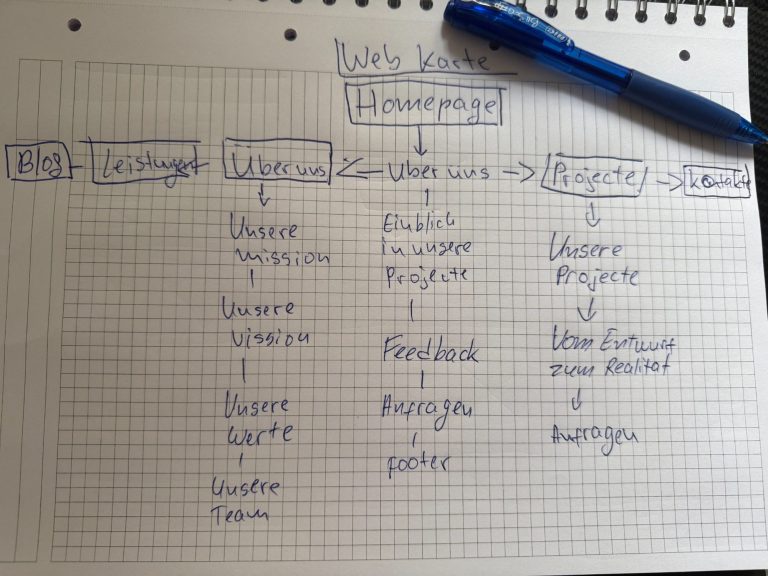 Web Karte
Homepage
Blog Leistungen Über uns Über uns Projecte Kontakte
Unsere
mission
Unsere
vission
Unsere
Werte
Unsere
Team
Einblich
in unsere
Projecte
Feedback
Anfragen
footer
Unsere
Projecte
Vom Entwurf
zum Realität
Anfragen